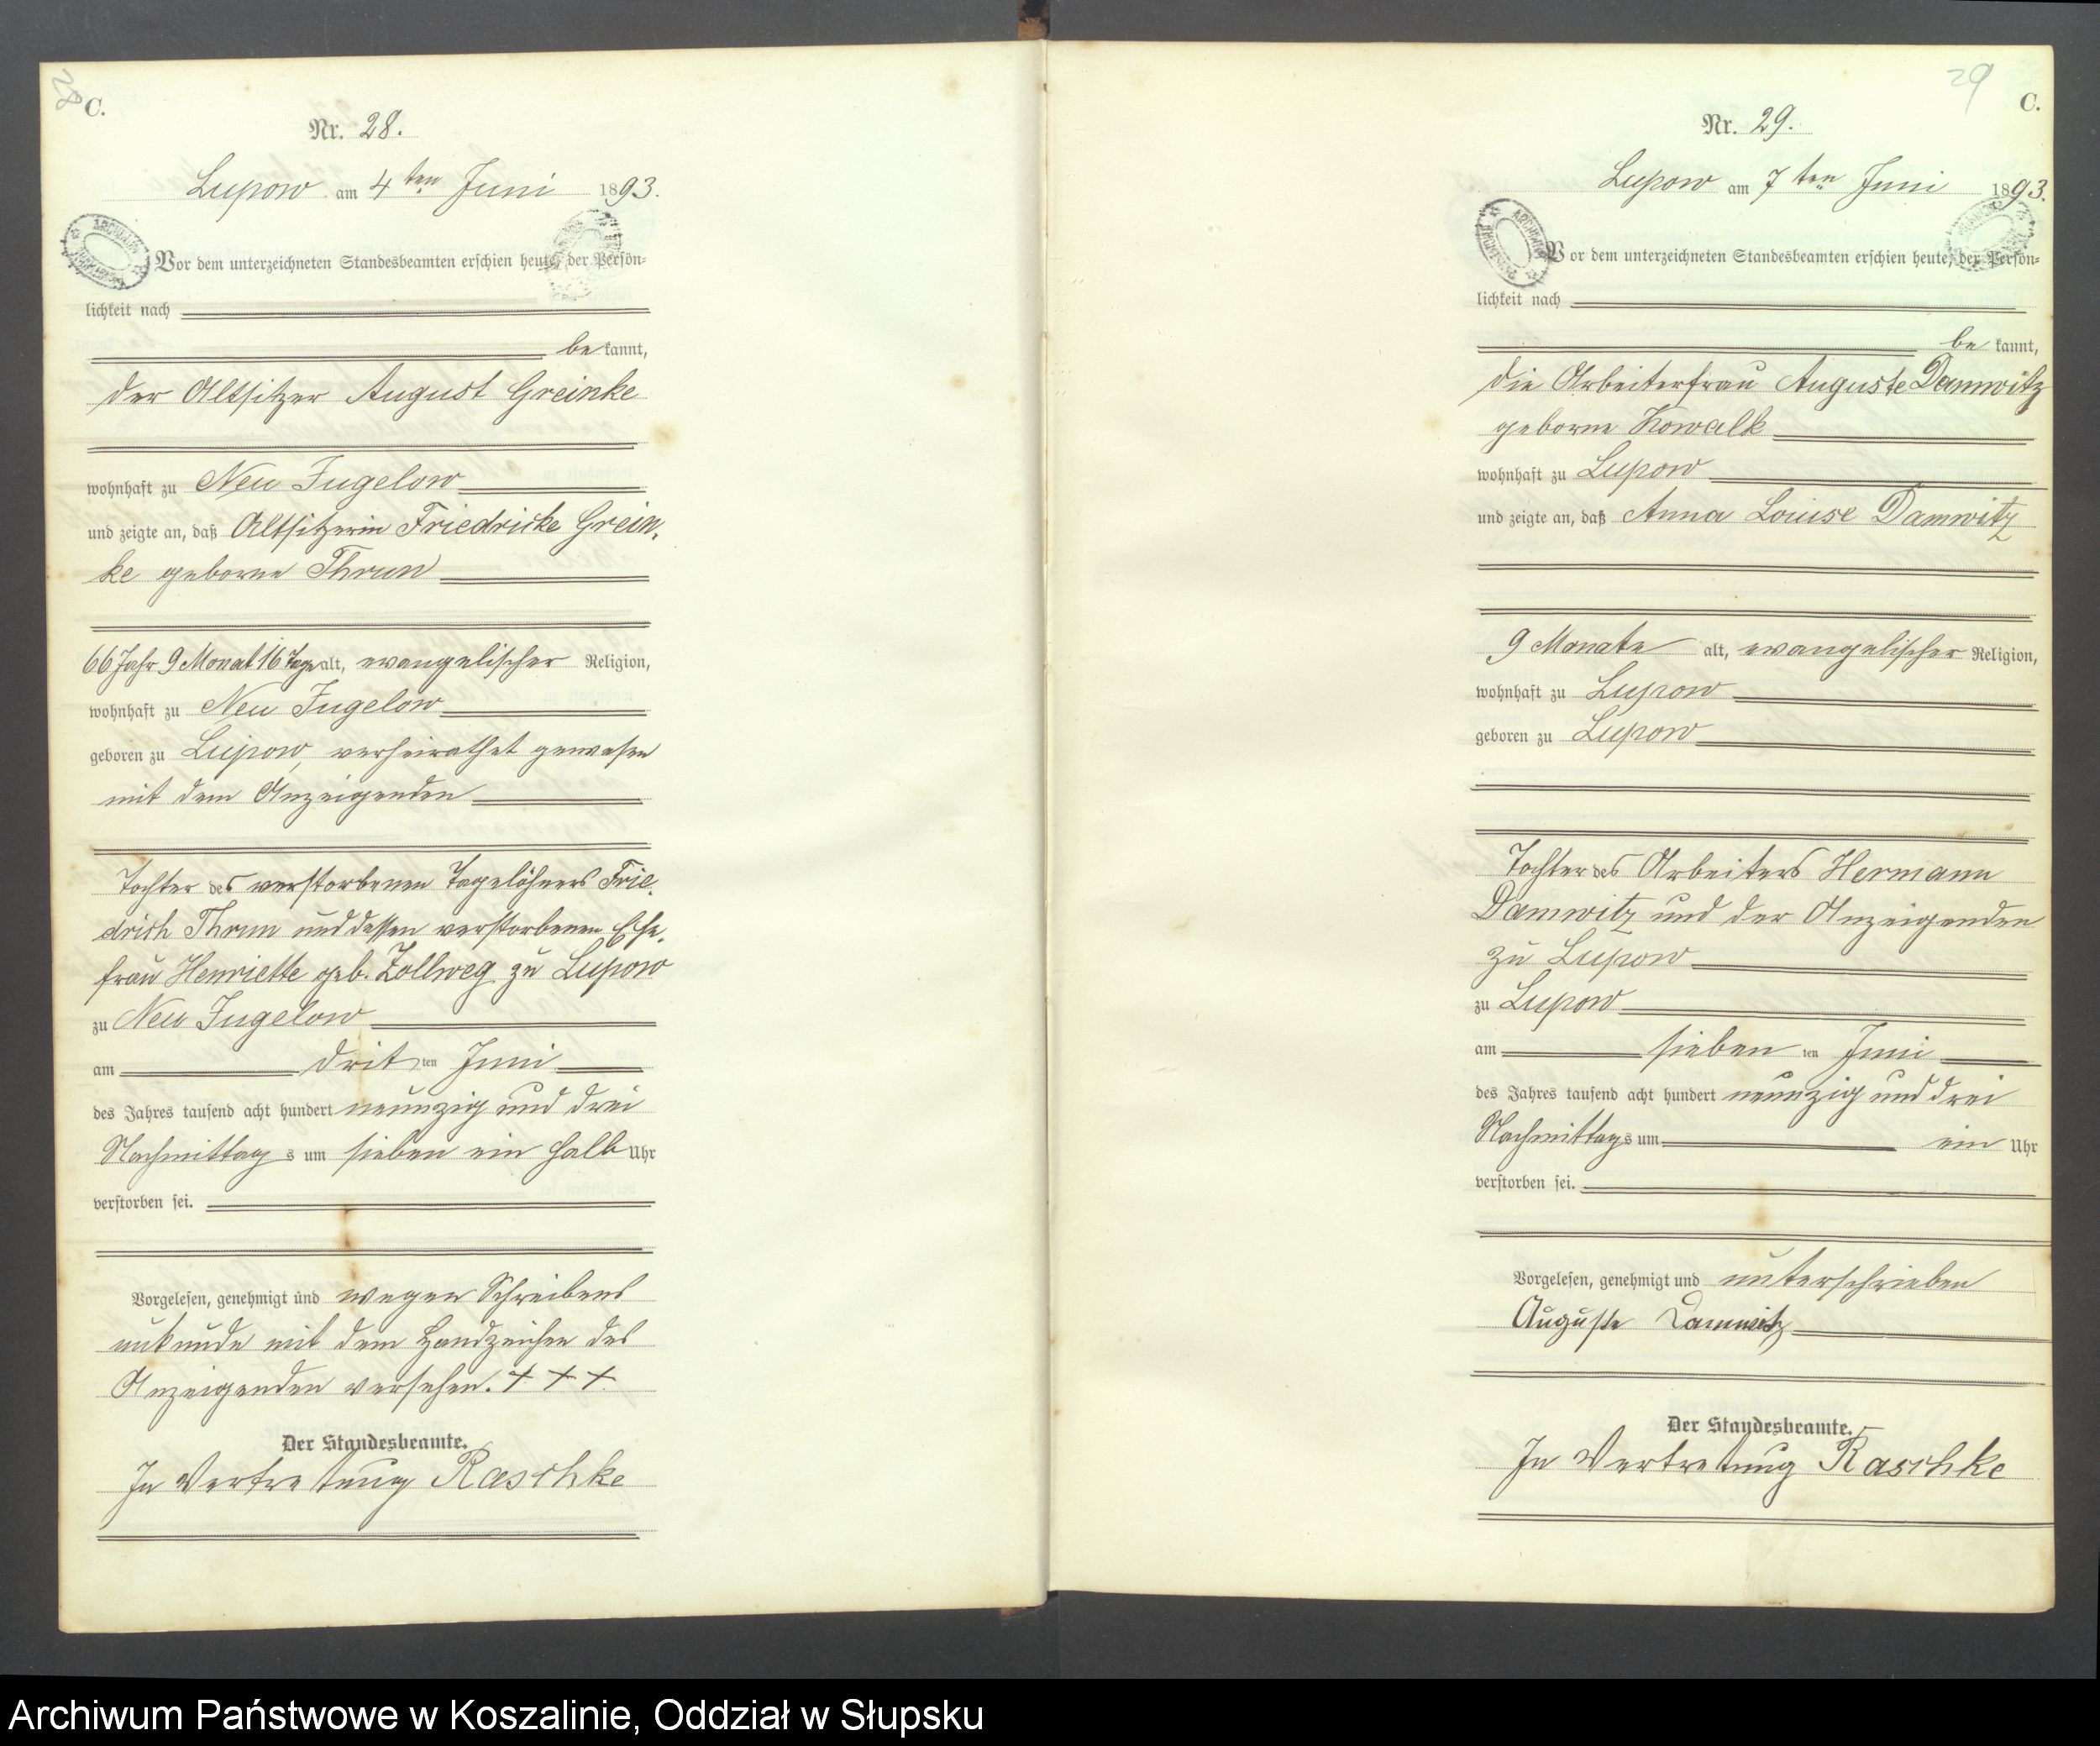 28
C.
Nr. 28.
Lupow am 4ten Juni 1893.
Vor dem unterzeichneten Standesbeamten erschien heute, der Persön-
lichkeit nach
be kannt,
der Altsitzer August Greinke
wohnhaft zu Neu Jugelow
und zeigte an, daß Altsitzerin Friedricke Grein-
ke geborne Thrun
66 Jahr 9 Monat 16 Tage alt, evangelischer Religion,
wohnhaft zu Neu Jugelow
geboren zu Lupow, verheirathet gewesen
mit dem Anzeigenden
Tochter des verstorbenen Tagelöhners Frie-
drich Thrun und dessen verstorbenen Ehe-
frau Henriette geb. Zollweg zu Lupow
zu Neu Jugelow
am drit ten Juni
des Jahres tausend acht hundert neunzig und drei
Nachmittag s um sieben ein halb Uhr
verstorben sei.
Vorgelesen, genehmigt und wegen Schreibens
unkunde mit dem Handzeichen des
Anzeigenden versehen. + + +
Der Standesbeamte.
In Vertretung Raschke
29
C.
Nr. 29.
Lupow am 7ten Juni 1893.
Vor dem unterzeichneten Standesbeamten erschien heute, der Persön-
lichkeit nach
be kannt,
die Arbeiterfrau Auguste Damwitz
geborne Kowalk
wohnhaft zu Lupow
und zeigte an, daß Anna Louise Damwitz
9 Monate alt, evangelischer Religion,
wohnhaft zu Lupow
geboren zu Lupow
Tochter des Arbeiters Hermann
Damwitz und der Anzeigenden
zu Lupow
zu Lupow
am sieben ten Juni
des Jahres tausend acht hundert neunzig und drei
Nachmittags um ein Uhr
verstorben sei.
Vorgelesen, genehmigt und unterschrieben
Auguste Damwitz
Der Standesbeamte.
In Vertretung Raschke
Archiwum Państwowe w Koszalinie, Oddział w Słupsku